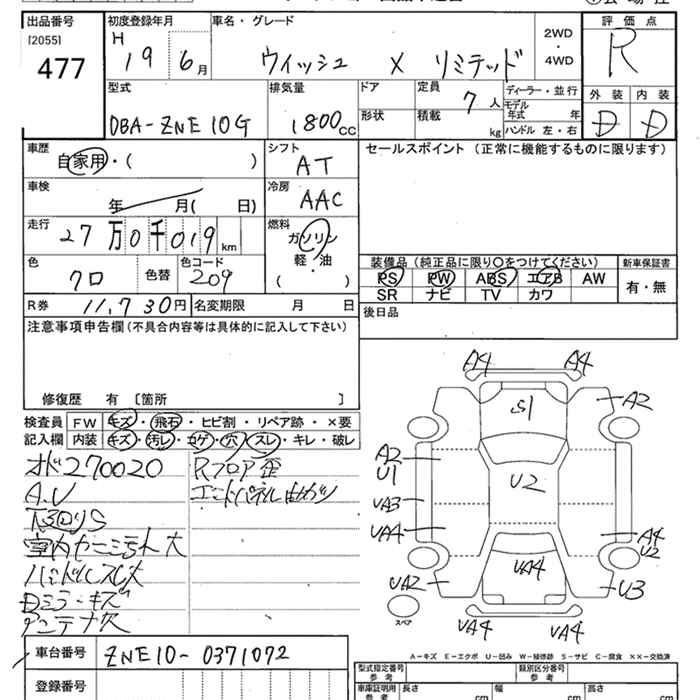 出品番号 初度登録年月 車名・グレード 2WD 評価点
[2055] H 19 6月 ウィッシュ X リミテッド 4WD R
477
型式 排気量 ドア 定員 7人 ディーラー・並行 外装 内装
DBA-ZNE10G 1800cc 形状 積載 kg モデル年式 年 D D
ハンドル 左・右
車歴 シフト セールスポイント (正常に機能するものに限ります)
自家用・( ) AT
車検 年 月( 日) 冷房 AAC
走行 27万0千019km 燃料
ガソリン
軽・油
( )
色 クロ 色替 色コード 209
装備品 (純正品に限り〇をつけてください) 新車保証書
PS PW ABS エアB AW 有・無
SR ナビ TV カワ
R券 11,730円 名変期限 月 日 後日品
注意事項申告欄(不具合内容等は具体的に記入して下さい)
修復歴 有 〔箇所 〕
検査員 FW キズ・飛石・ヒビ割・リペア跡・×要
記入欄 内装 キズ・汚レ・コゲ・穴・スレ・キレ・破レ
オド270020 Rフロア歪
A.V エンドパネル曲ガリ
下回りS
室内ヤニ汚れ大
ハンドルスレ大
Dミラーキズ
アンテナ欠
A4 A4
S1 A2
A2
U1 U2
UA3
UA4 A4
U2
UA4
UA2 U3
スペア
UA4 UA4
A-キズ E-エクボ U-凹み W-補修跡 S-サビ C-腐食 ××-交換済
車台番号 ZNE10-0371072
登録番号
型式指定番号 参考 類別区分番号 参考
車庫証明用 参考 長さ cm 幅 cm 高さ cm